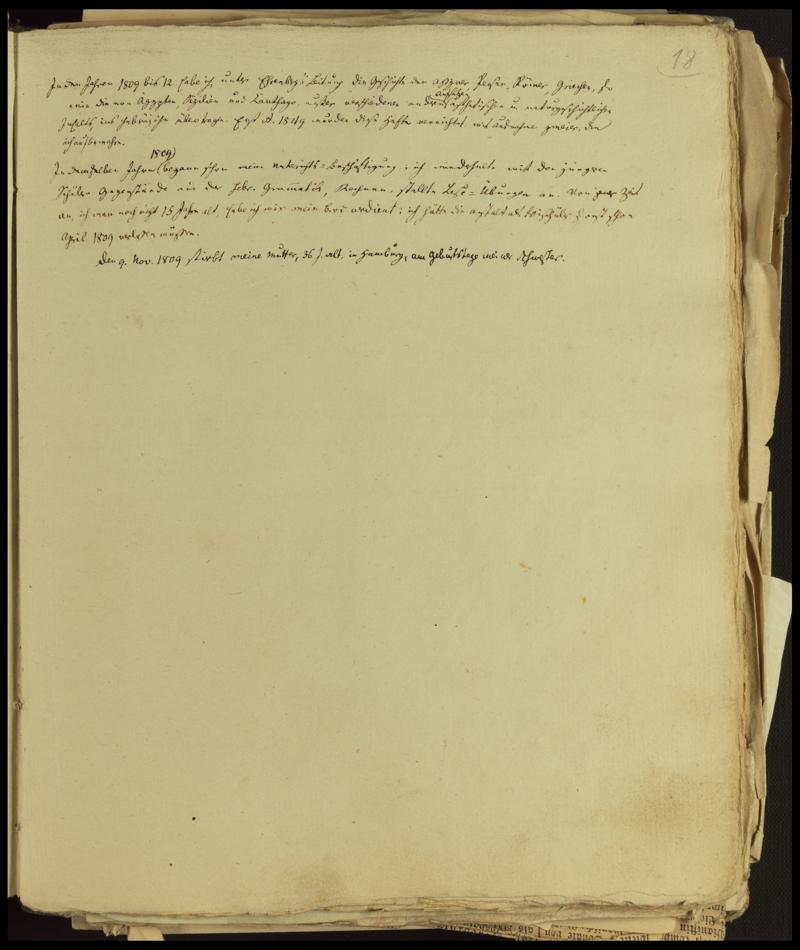 18
In den Jahren 1809 bis 12 habe ich, unter Ehrenberg's Leitung die Geschichte der Assyrer, Perser, Römer, Griechen, so
wie die von Ägypten, Sizilien und Karthago, außer verschiedenen anderen Aufsätzen ästhetischen u. naturgeschichtlichen
Inhalts, ins hebräische übertragen. Erst A. 1849 wurden diese Hefte vernichtet, mit Ausnahme zweier, die
ich aufbewahre.
In demselben Jahre (1809) begann schon meine Unterrichts=Beschäftigung; ich wiederholte mit den jüngern
Schülern Gegenstände aus der hebr. Grammatik, Rechnen, stellte Lese=Übungen an. Von der Zeit
an, ich war noch nicht 15 Jahre alt, habe ich mir mein Brod verdient; ich hätte die Anstalt als Freischüler sonst schon
April 1809 verlassen müssen.
Den 9. Nov. 1809 stirbt meine Mutter, 36 J. alt, in Hamburg, am Geburtstage meiner Schwester.